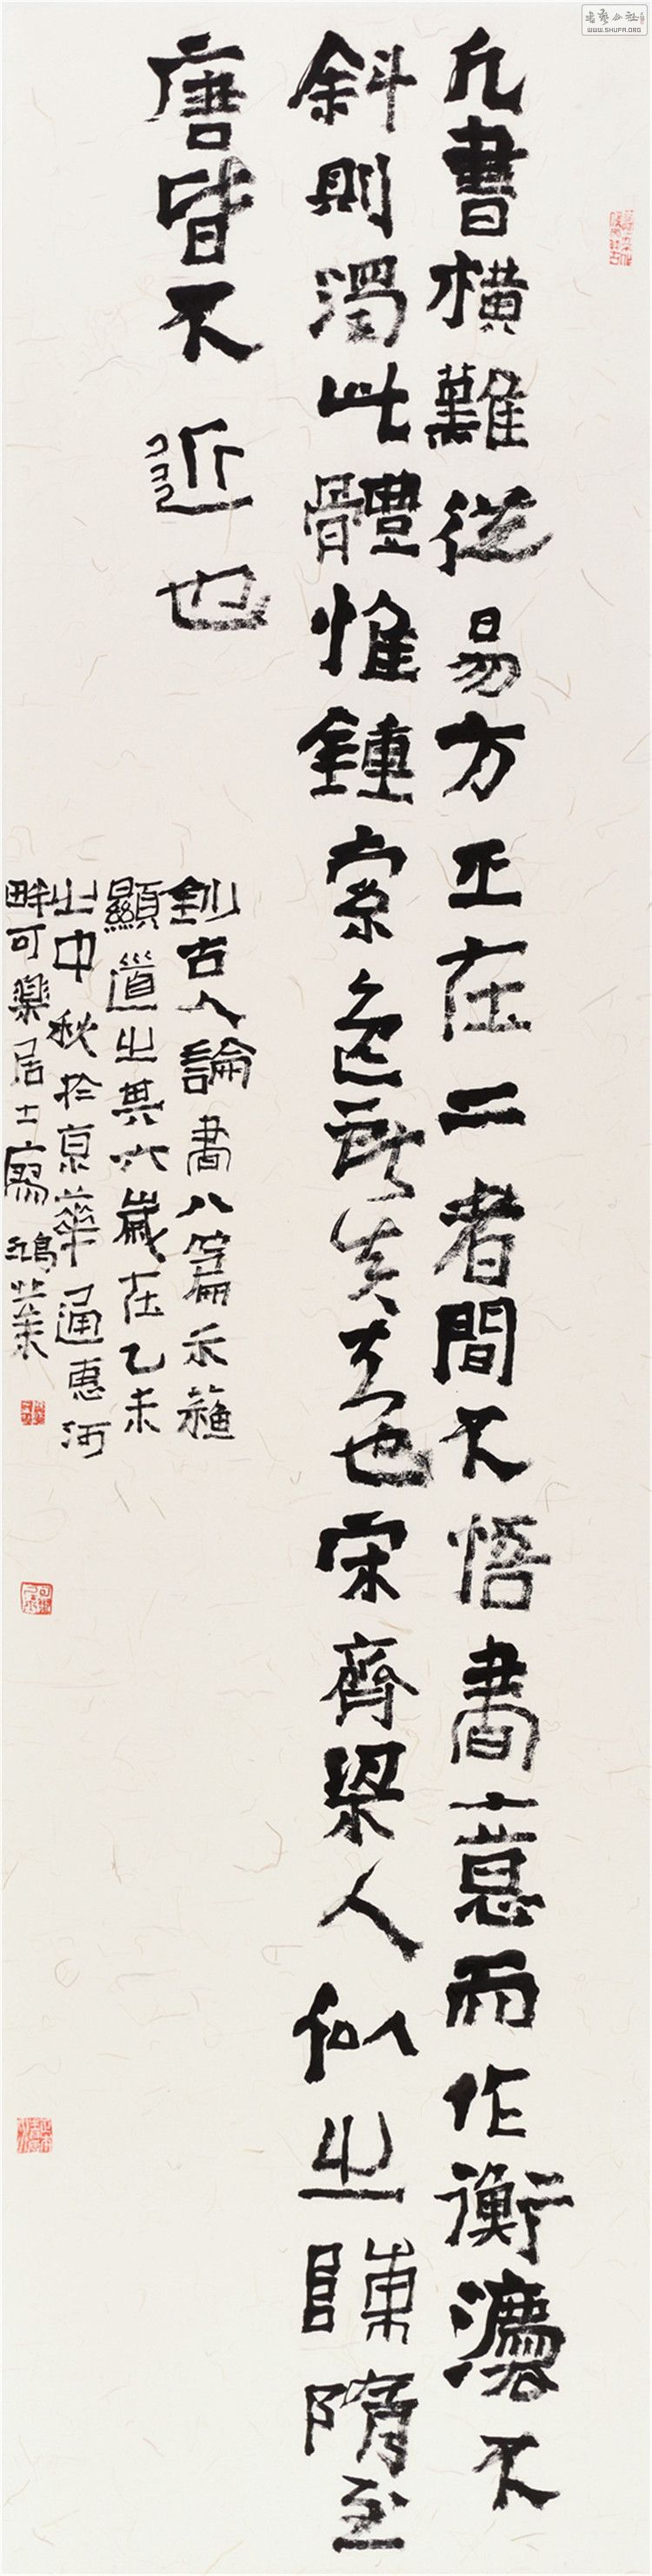 凡書橫難從易方正在二者間不悟書意而作衡灋不
斜則濁此體惟鍾索也宋齊梁人似之陳隋至
唐皆不近也
鈔古人論書八篇示
顯道之其六歲在乙未
之中秋於京華通惠河
畔可樂居士鴻業
書藝公社
WWW.SHUFA.ORG